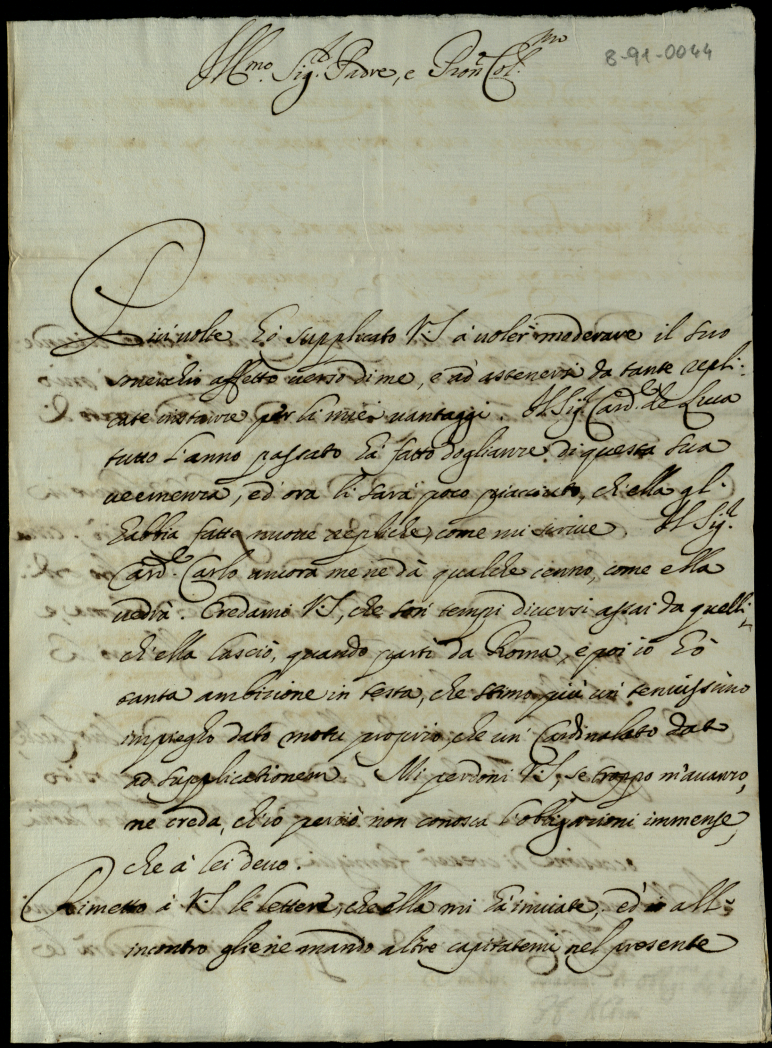 8-91-0044
Ill.mo Sig.r Padre, e Pron Col.mo
Più uolte hò supplicato V.S. à uoler moderare il suo
souerchio affetto uerso di me, e ad astenersi da tante repli-
cate instanze per li miei uantaggi. Il Sig.r Card.le de Luca
tutto l'anno passato hà fatto doglianze di questa sua
ueemenza, ed ora li sarà poco piacciuto, ch'ella gl'
habbia fatte nuoue repliche, come mi scriue. Il Sig.r
Card.le Carlo ancora me ne dà qualche cenno, come ella
uedrà. Credami V.S., che son tempi diuersi assai da quelli
ch'ella lasciò, quando partì da Roma, e poi io hò
tanta ambizione in testa, che stimo più un tenuissimo
impiegho dato motu proprio, che un Cardinalato dato
ad supplicationem. Mi perdoni V.S., se troppo m'auanzo,
ne creda, ch'io perciò non conosca l'obligazioni immense,
che à lei deuo.
Rimetto à V.S. le lettere, che ella mi hà inuiate, ed io all'
incontro gliene mando altre capitatemi nel presente